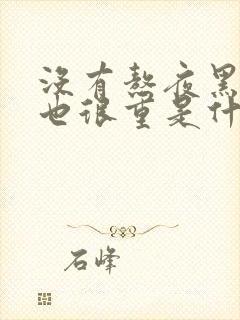 没有熬夜黑
也很重是什
石峰